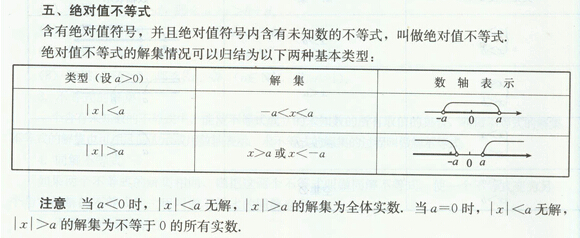 五、绝对值不等式
含有绝对值符号，并且绝对值符号内含有未知数的不等式，叫做绝对值不等式.
绝对值不等式的解集情况可以归结为以下两种基本类型：
类型(设a>0) 解 集 数 轴 表 示
|x|<a -a<x<a -a 0 a
|x|>a x>a或x<-a -a 0 a
注意 当a<0时，|x|<a无解，|x|>a的解集为全体实数. 当a=0时，|x|<a无解，
|x|>a的解集为不等于0的所有实数.